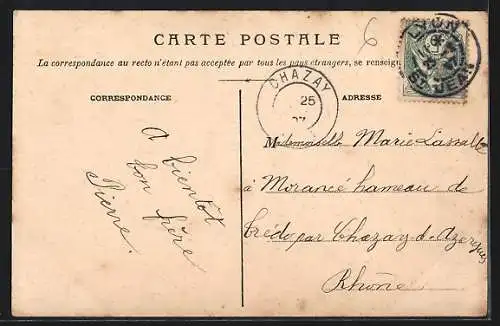 CARTE POSTALE
6
La correspondance au recto n'étant pas acceptée par tous les pays étrangers, se renseign
LYON
ST JEAN
CHAZAY
25
07
CORRESPONDANCE
ADRESSE
A
bientôt
ton frère
Pierre.
Mademoiselle Marie Lassalle
à Morancé hameau de
Crédo par Chazay-d'Azergues
Rhône